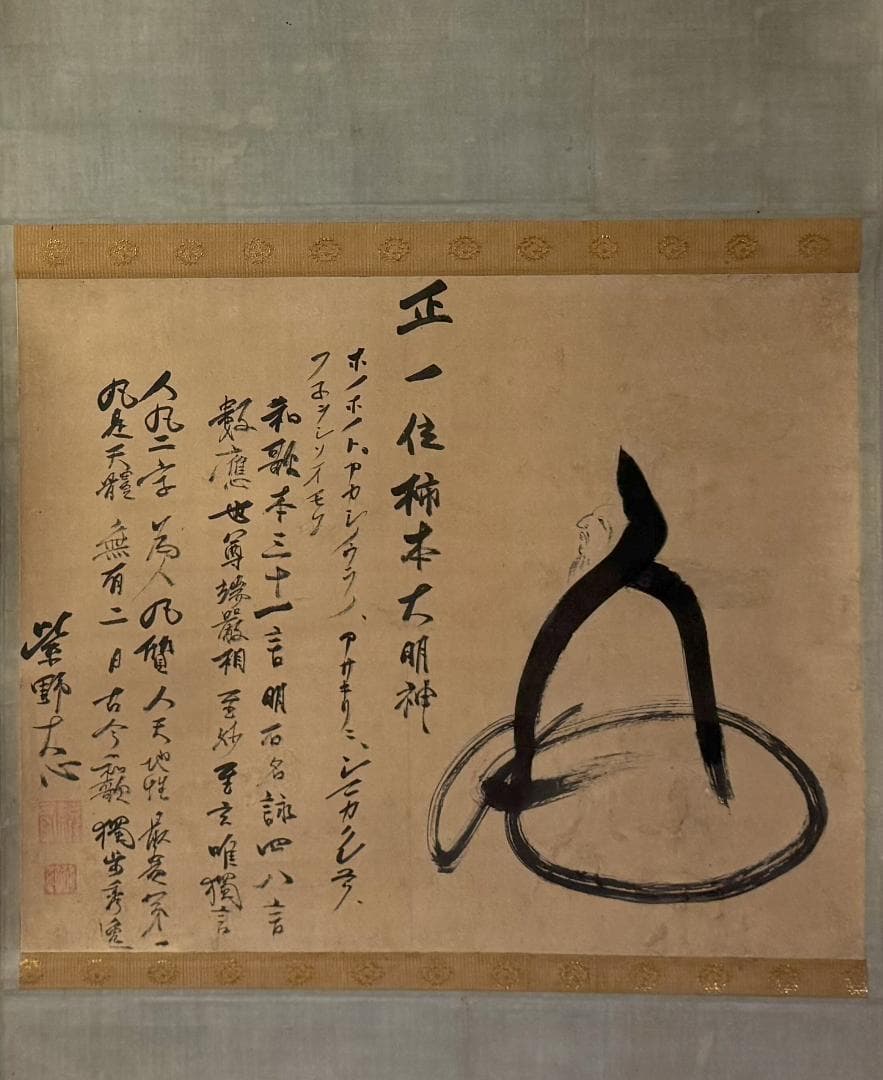 正一位柿本大明神
ホノホノト、アカシノウラノ、アサキリニ、シマカクレユク、
フネヲシソイモウ
和歌本三十一言明石名詠四八言
數應世尊端嚴相至妙至玄唯獨言
人丸二字為人丸賛人天地性最貴第一
丸是天體無有二月古今和歌獨步秀逸
紫野大心